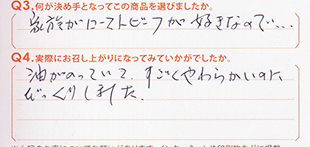 Q3.何が決め手となってこの商品を選びましたか。
家族がローストビーフが好きなので…
Q4.実際にお召し上がりになってみていかがでしたか。
油がのっていて、すごくやわらかいのに
びっくりしました。